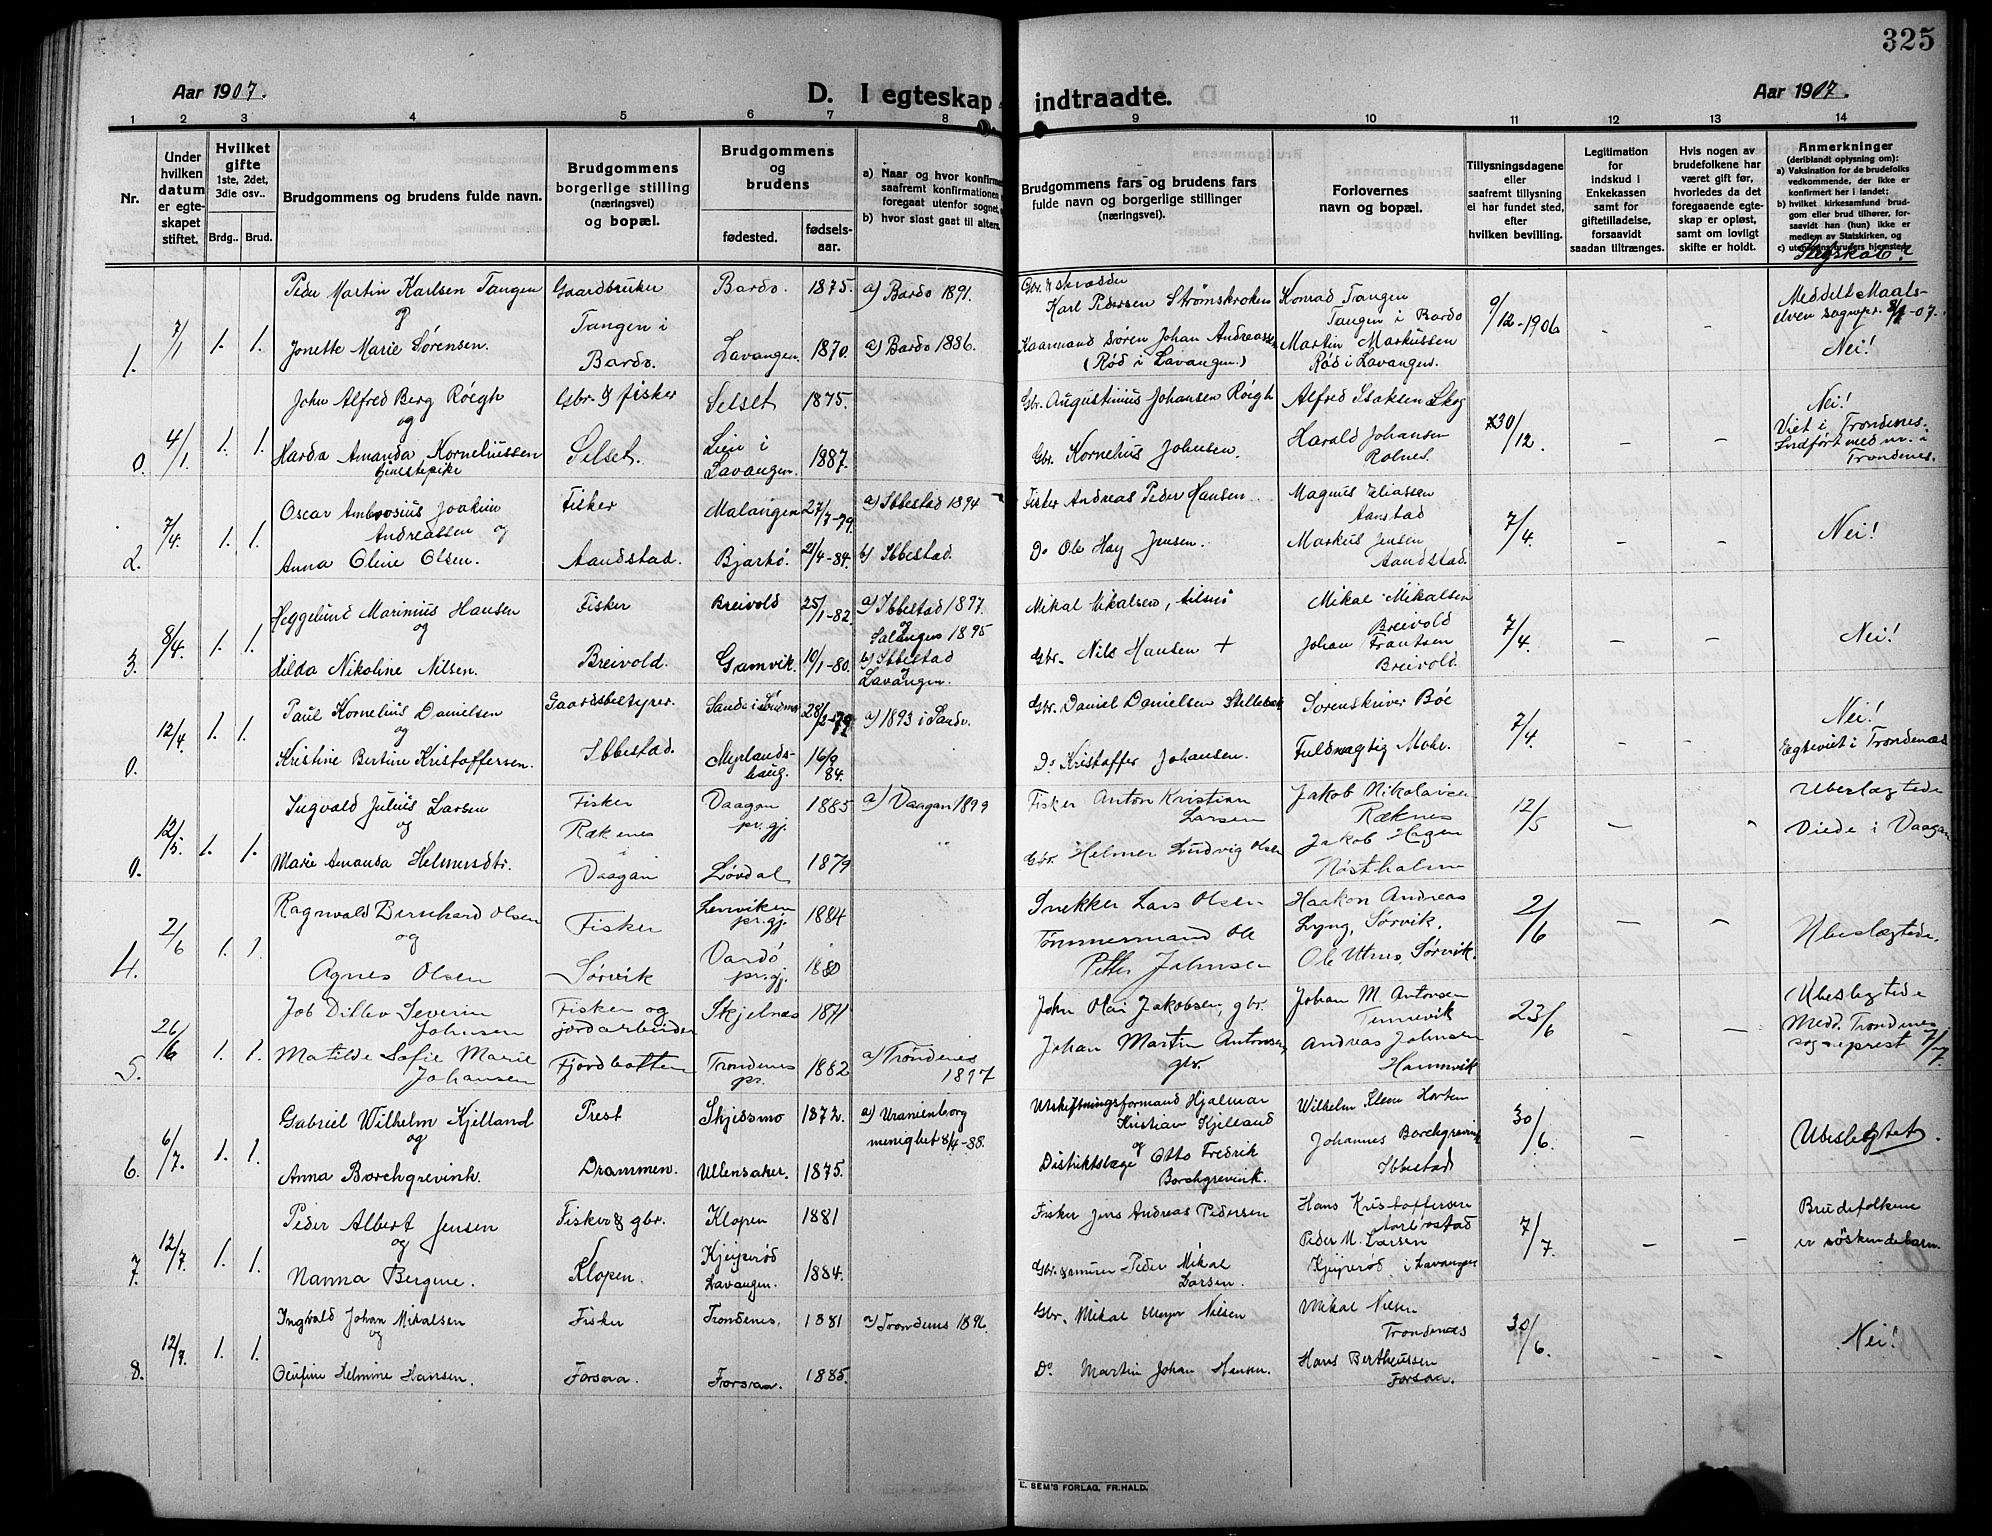 325
Aar 1907.
D. I egteskap indtraadte.
Aar 1907.
1 2 3 4 5 6 7 8 9 10 11 12 13 14
Nr.
Under hvilken datum er egteskapet stiftet.
Hvilket gifte 1ste, 2det, 3die osv..
Brdg.. Brud.
Brudgommens og brudens fulde navn.
Brudgommens borgerlige stilling (næringsvei) og bopæl.
Brudgommens og brudens
fødested. fødselsaar.
a) Naar og hvor konfirme
saafremt konfirmationen
foregaat utenfor sognet,
b) hvor sidst gaat til alters.
Brudgommens fars og brudens fars fulde navn og borgerlige stillinger (næringsvei).
Forlovernes navn og bopæl.
Tillysningsdagene eller saafremt tillysning ei har fundet sted, efter hvilken bevilling.
Legitimation for indskud i Enkekassen samt for giftetilladelse, forsaavidt saadan tiltrænges.
Hvis nogen av brudefolkene har været gift før, hvorledes da det foregaaende egteskap er opløst, samt om lovligt skifte er holdt.
Anmerkninger (deriblandt oplysning om):
a) Vaksination for de brudefolks vedkommende, der ikke er konfirmert her i landet;
b) hvilket kirkesamfund brudgom eller brud tilhører, forsaavidt han (hun) ikke er medlem av Statskirken, og
c) utenbygds bruders hjemsted.
Slegskab?
1. 7/1 1. 1. Peder Martin Karlsen Tangen
og
Jonette Marie Sørensen.
Gaardbruker
Tangen i
Bardo.
Bardo. 1875. a) Bardo 1891.
Lavangen 1870. a) Bardo 1886.
Karl Pedersen Strømskroken
Kaarmand Søren Johan Andreassen
(Rød i Lavangen.)
Konrad Tangen
Tangen i Bardo
Martin Markussen
Rød i Lavangen.
9/12-1906 - -
Meddelt Maalselven sognepr. 8/1-07.
Nei!
0. 4/1 1. 1. John Alfred Berg Røigh
og
Harda Amanda Korneliussen
tjenestepike
Gbr. & fisker
Selset.
Selset 1875.
Lien i
Lavangen. 1887.
Gbr. Augustinius Johansen Røigh
Gbr. Kornelius Johnsen.
Alfred Isaksen Skog
Harald Johansen
Rolnes.
30/12. - -
Nei!
Viet i Trondenes.
Indført med nr. i
Trondenes.
2. 7/4. 1. 1. Oscar Ambrosius Joakim
Andreassen og
Anna Oline Olsen.
Fisker
Aandstad.
Malangen 27/7-79. a) Ibbestad 1894
Bjarkö. 21/4-84. b) Ibbestad.
Fisker Andreas Peder Hansen.
Do Ole Hay Jensen.
Magnus Eliassen
Aanstad
Markus Jensen
Aandstad.
7/4. - -
Nei!
3. 8/4. 1. 1. Heggelund Marinius Hansen
og
Hilda Nikoline Nilsen.
Fisker
Breivold.
Breivold 25/1-82. a) Ibbestad 1897.
og
Salangen 1895
Gamvik. 10/1-80. b) Ibbestad
Lavangen.
Mikal Mikalsen,
Gbr. Nils Hansen +
Mikal Mikalsen
Breivold
Johan Frantsen
Breivold.
7/4. - -
Nei!
0. 12/4. 1. 1. Paul Kornelius Danielsen
og
Kristine Bertine Kristoffersen.
Gaardsbestyrer.
Ibbestad.
Sande i Søndmør 28/2-79 a) 1893 i Sande.
Myrlandshaug. 16/9 84.
Gbr. Daniel Danielsen
Do Kristoffer Johansen.
Sorenskriver Bøe
Fuldmægtig Mohr.
7/4. - -
Nei!
Egteviet i Trondenæs
0. 12/5. 1. 1. Ingvald Julius Larsen
og
Marie Amanda Helmersdtr.
Fisker
Ræknes
i
Vaagan
Vaagan
pr.gj. 1885 a) Vaagan 1899
Løvdal 1879
Fisker Anton Kristian
Larsen
Gbr. Helmer Ludvig Olsen
Jakob Nikolaisen
Ræknes
Jakob Hagen
Nøstholmen
12/5 -
Ubeslægtede
Viede i Vaagan
4. 2/6 1. 1. Ragnvald Bernhard Olsen
og
Agnes Olsen
Fisker
Sørvik
Lenviken
pr.gj. 1884
Vardö
pr.gj. 1880
Snekker Lars Olsen
Tømmermand Ole
Petter Johnsen
Haakon Andreas
Lyng, Sørvik.
Ole Utnes, Sørvik.
2/6 - -
Ubeslægtede.
5. 26/6 1. 1. Job Ditlev Severin
Johnsen
Matilde Sofie Marie
Johansen
Fisker og
jordarbeider
Fjordbotten
Skjelnæs 1871
Trondenes
pr. 1882 a) Trondenes
1897
John Olai Jakobsen, gbr.
Johan Martin Antonsen,
gbr.
Johan M. Antonsen
Tennevik
Andreas Johnsen
Hamnvik
23/6 - -
Ubeslegtede
Medd. Trondenes
sogneprest 7/7
6. 6/7. 1. 1. Gabriel Wilhelm Kjelland
og
Anna Borchgrevink.
Prest
Drammen.
Skjedsmo 1872. a) Uranienborg
menighet 8/4-88.
Ullensaker. 1875.
Utskiftningsformand Hjalmar
Kristian Kjelland
og
Distriktslæge Otto Fredrik
Borchgrevink.
Wilhelm Klem Horten
Johannes Borchgrevink
Ibbestad
30/6. - -
Ubeslegtet.
7. 12/7. 1. 1. Peder Albert Jensen
og
Nanna Bergine.
Fisker & gbr.
Klopen.
Klopen 1881
Kjeiperød
Lavangen. 1884.
Fisker Jens Andreas Pedersen
Gbr. & murer Peder Mikal
Larsen.
Hans Kristoffersen
Peder M. Larsen
Kjeiperød i Lavangen
7/7. - -
Brudefolkene
er söskendebarn.
8. 12/7. 1. 1. Ingvald Johan Mikalsen
og
Oeufine Helmine Hansen.
Fisker
Forsaa.
Trondenes. 1881 a) Trondenes 1896.
Forsaa. 1885.
Gbr. Mikal Meyer Nilsen
Do Martin Johan Hansen.
Mikal Nilsen
Trondenes
Hans Bertheussen
Forsaa.
30/6. - -
Nei!
E. SEM'S FORLAG, FR.HALD.